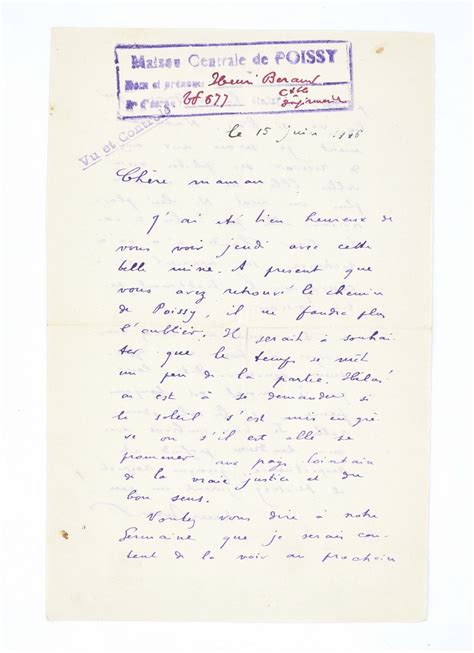 Maison Centrale de POISSY
Nom et prénoms Henri Beraud
N° d'écrou 677
Cllle
infirmerie
Vu et Contrôlé
le 15 juin 1946
Chère maman
J'ai été bien heureux de
vous voir jeudi avec cette
belle mine. A present que
vous avez retrouvé le chemin
de Poissy, il ne faudra plus
l'oublier. Il serait à souhai
ter que le temps se mît
un peu de la partie. Hélas
on est à se demander si
le soleil s'est mis en grè
ve ou s'il est allé se
promener aux pays lointain
de la vraie justice et du
bon sens.
Voulez vous dire à notre
Germaine que je serais con
tent de la voir au prochain